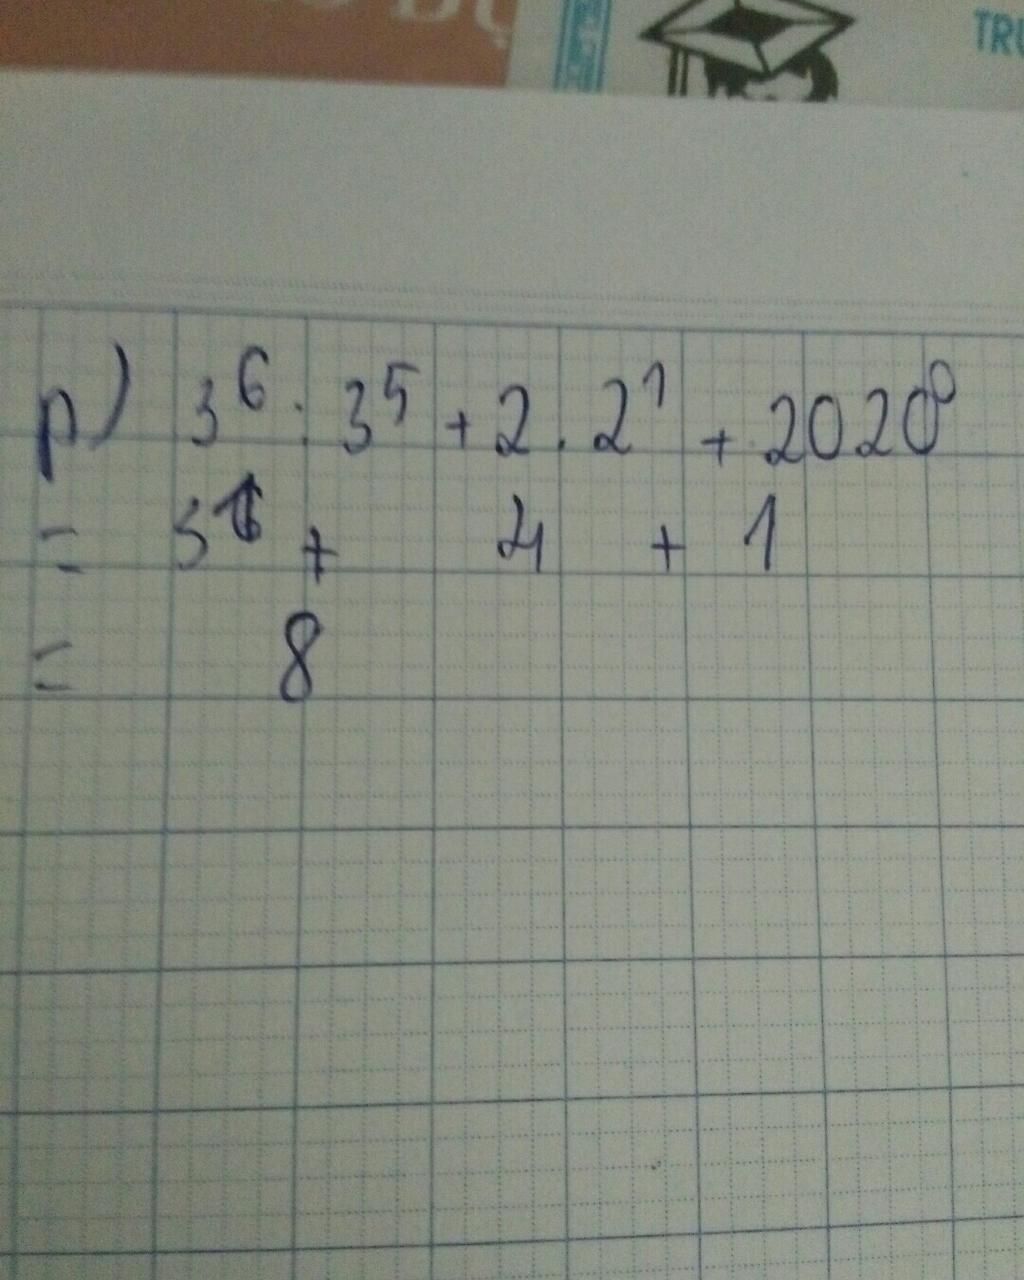 TRU
p) 3⁶ : 3⁵ + 2 . 2¹ + 2020⁰
= 3¹ + 4 + 1
= 8